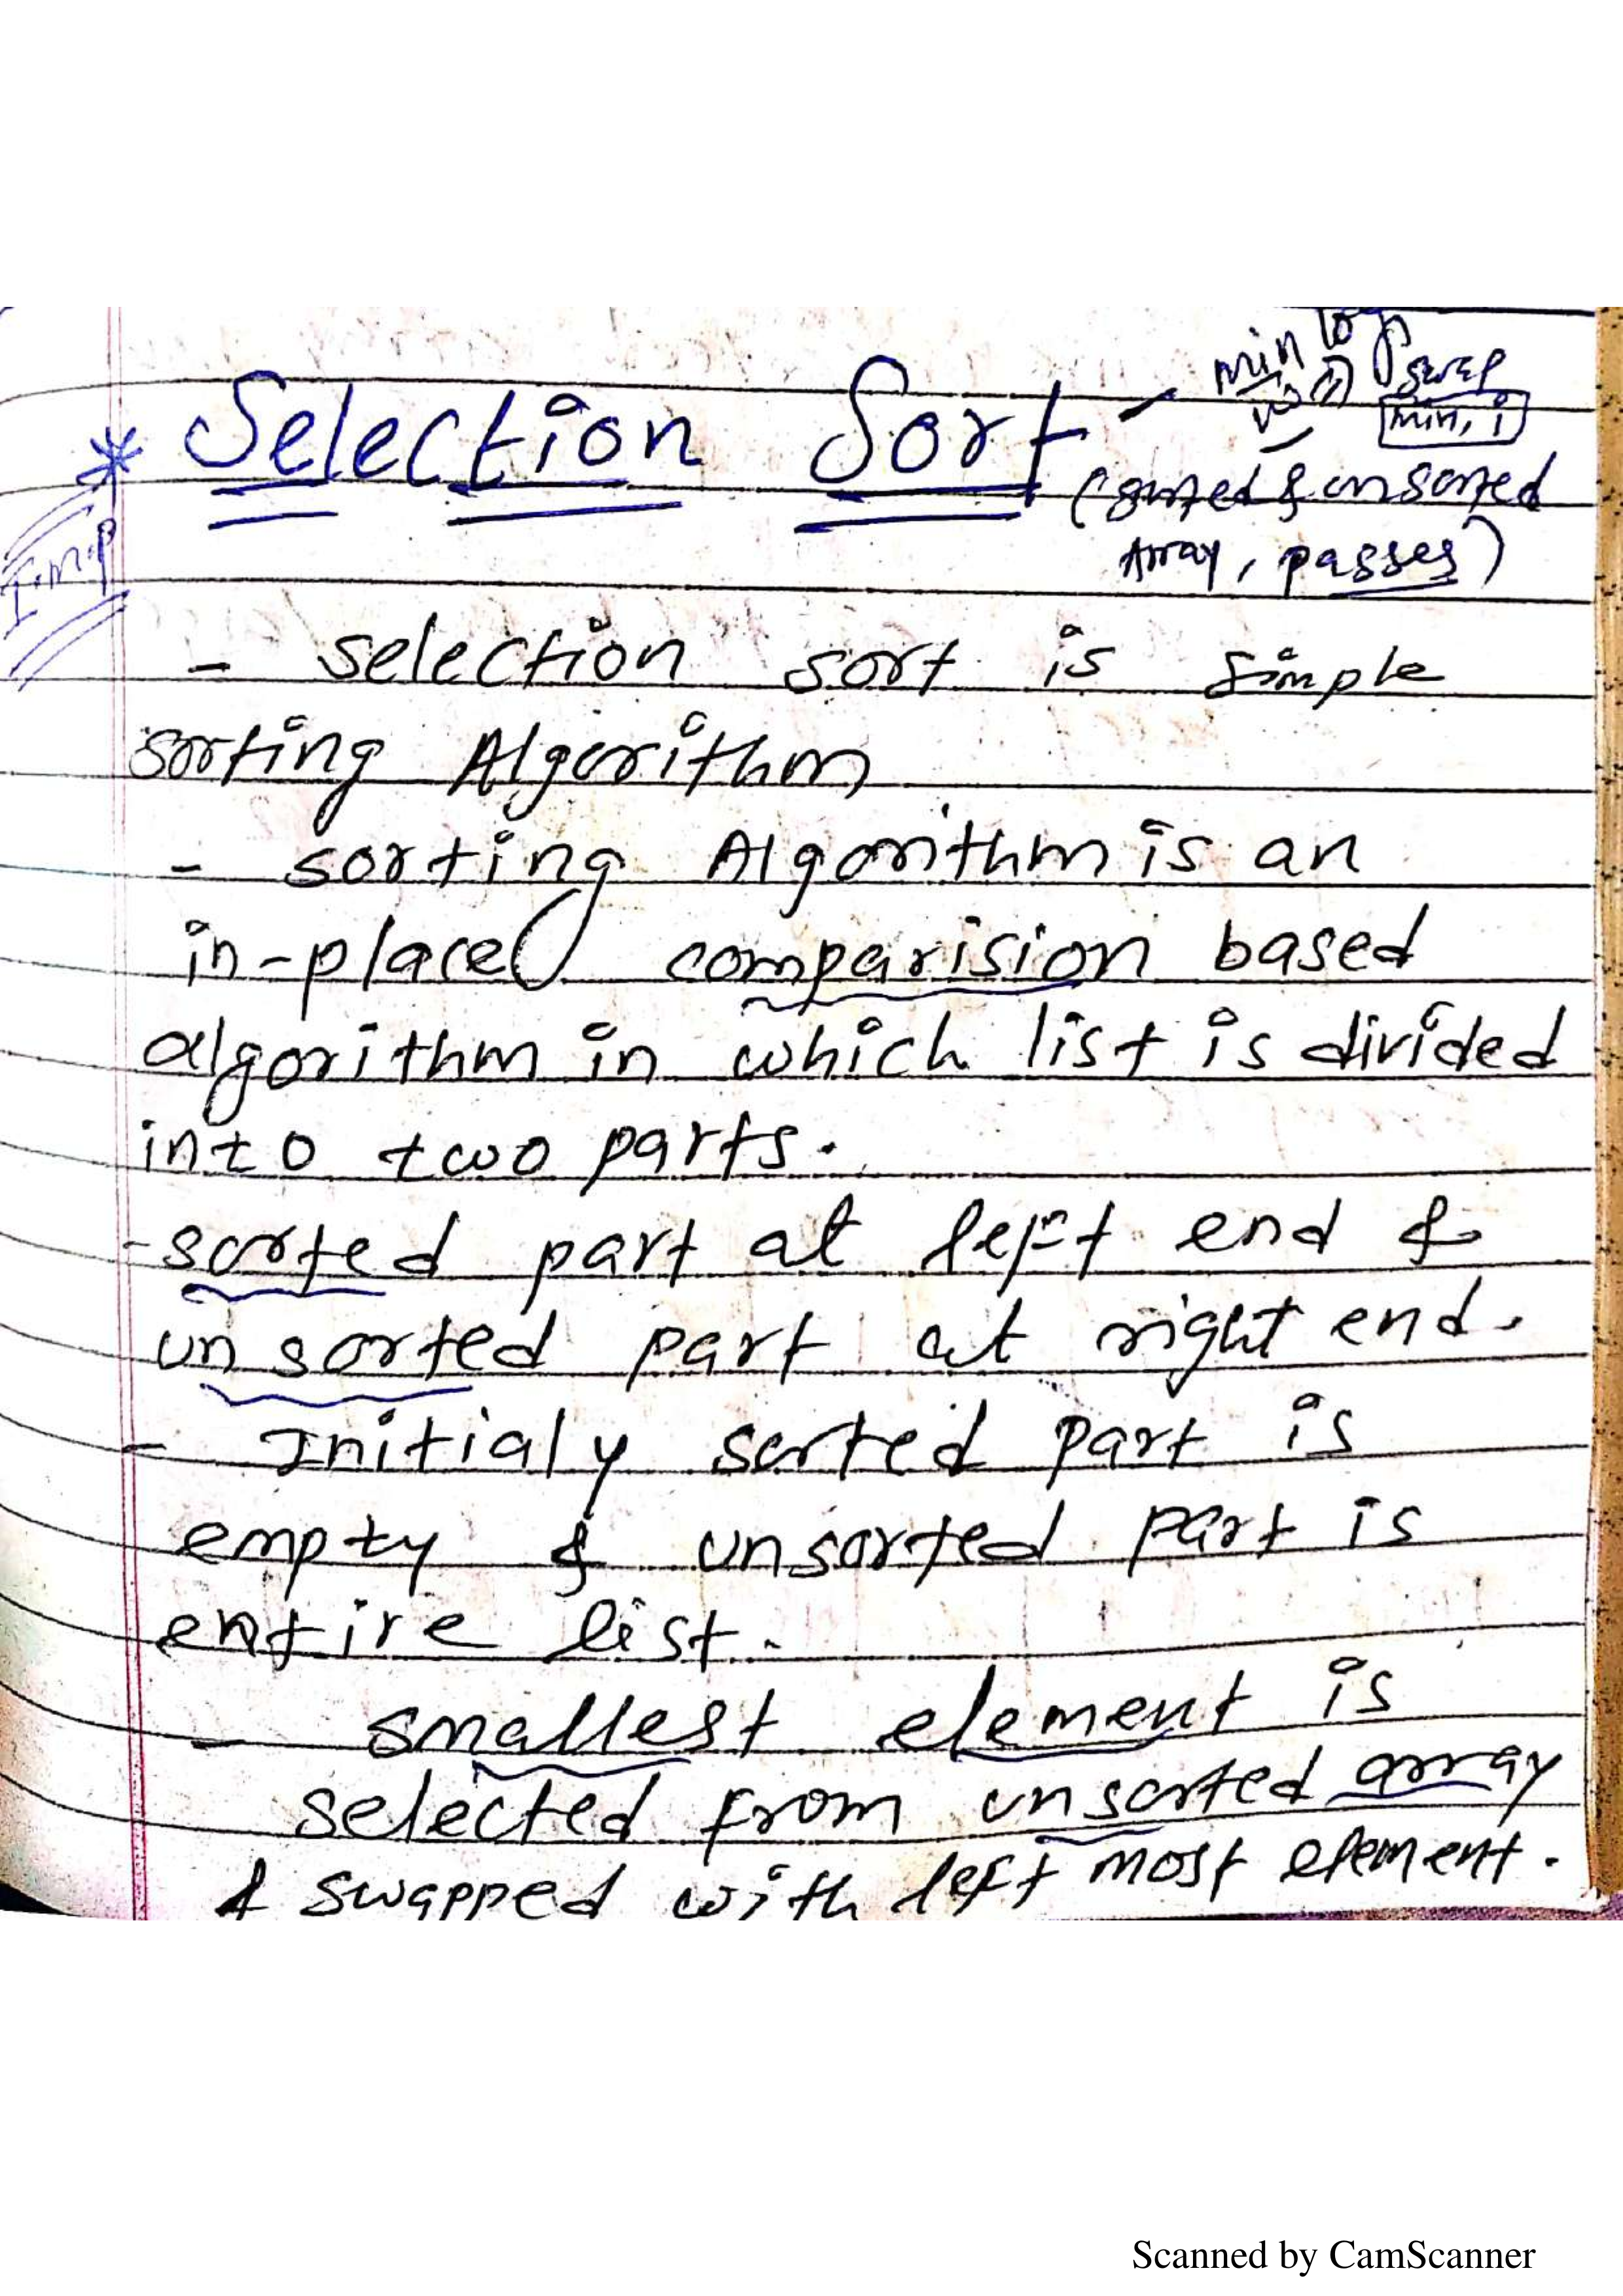 min
swap
min, i
* Selection Sort -
(sorted & unsorted
Array, passes)
Imp
- selection sort is simple
sorting Algorithm
- sorting Algorithm is an
in-place comparision based
algorithm in which list is divided
into two parts.
- sorted part at left end &
unsorted part at right end.
- Initialy sorted part is
empty & unsorted part is
entire list.
- smallest element is
selected from unsorted array
& swapped with left most element.
Scanned by CamScanner